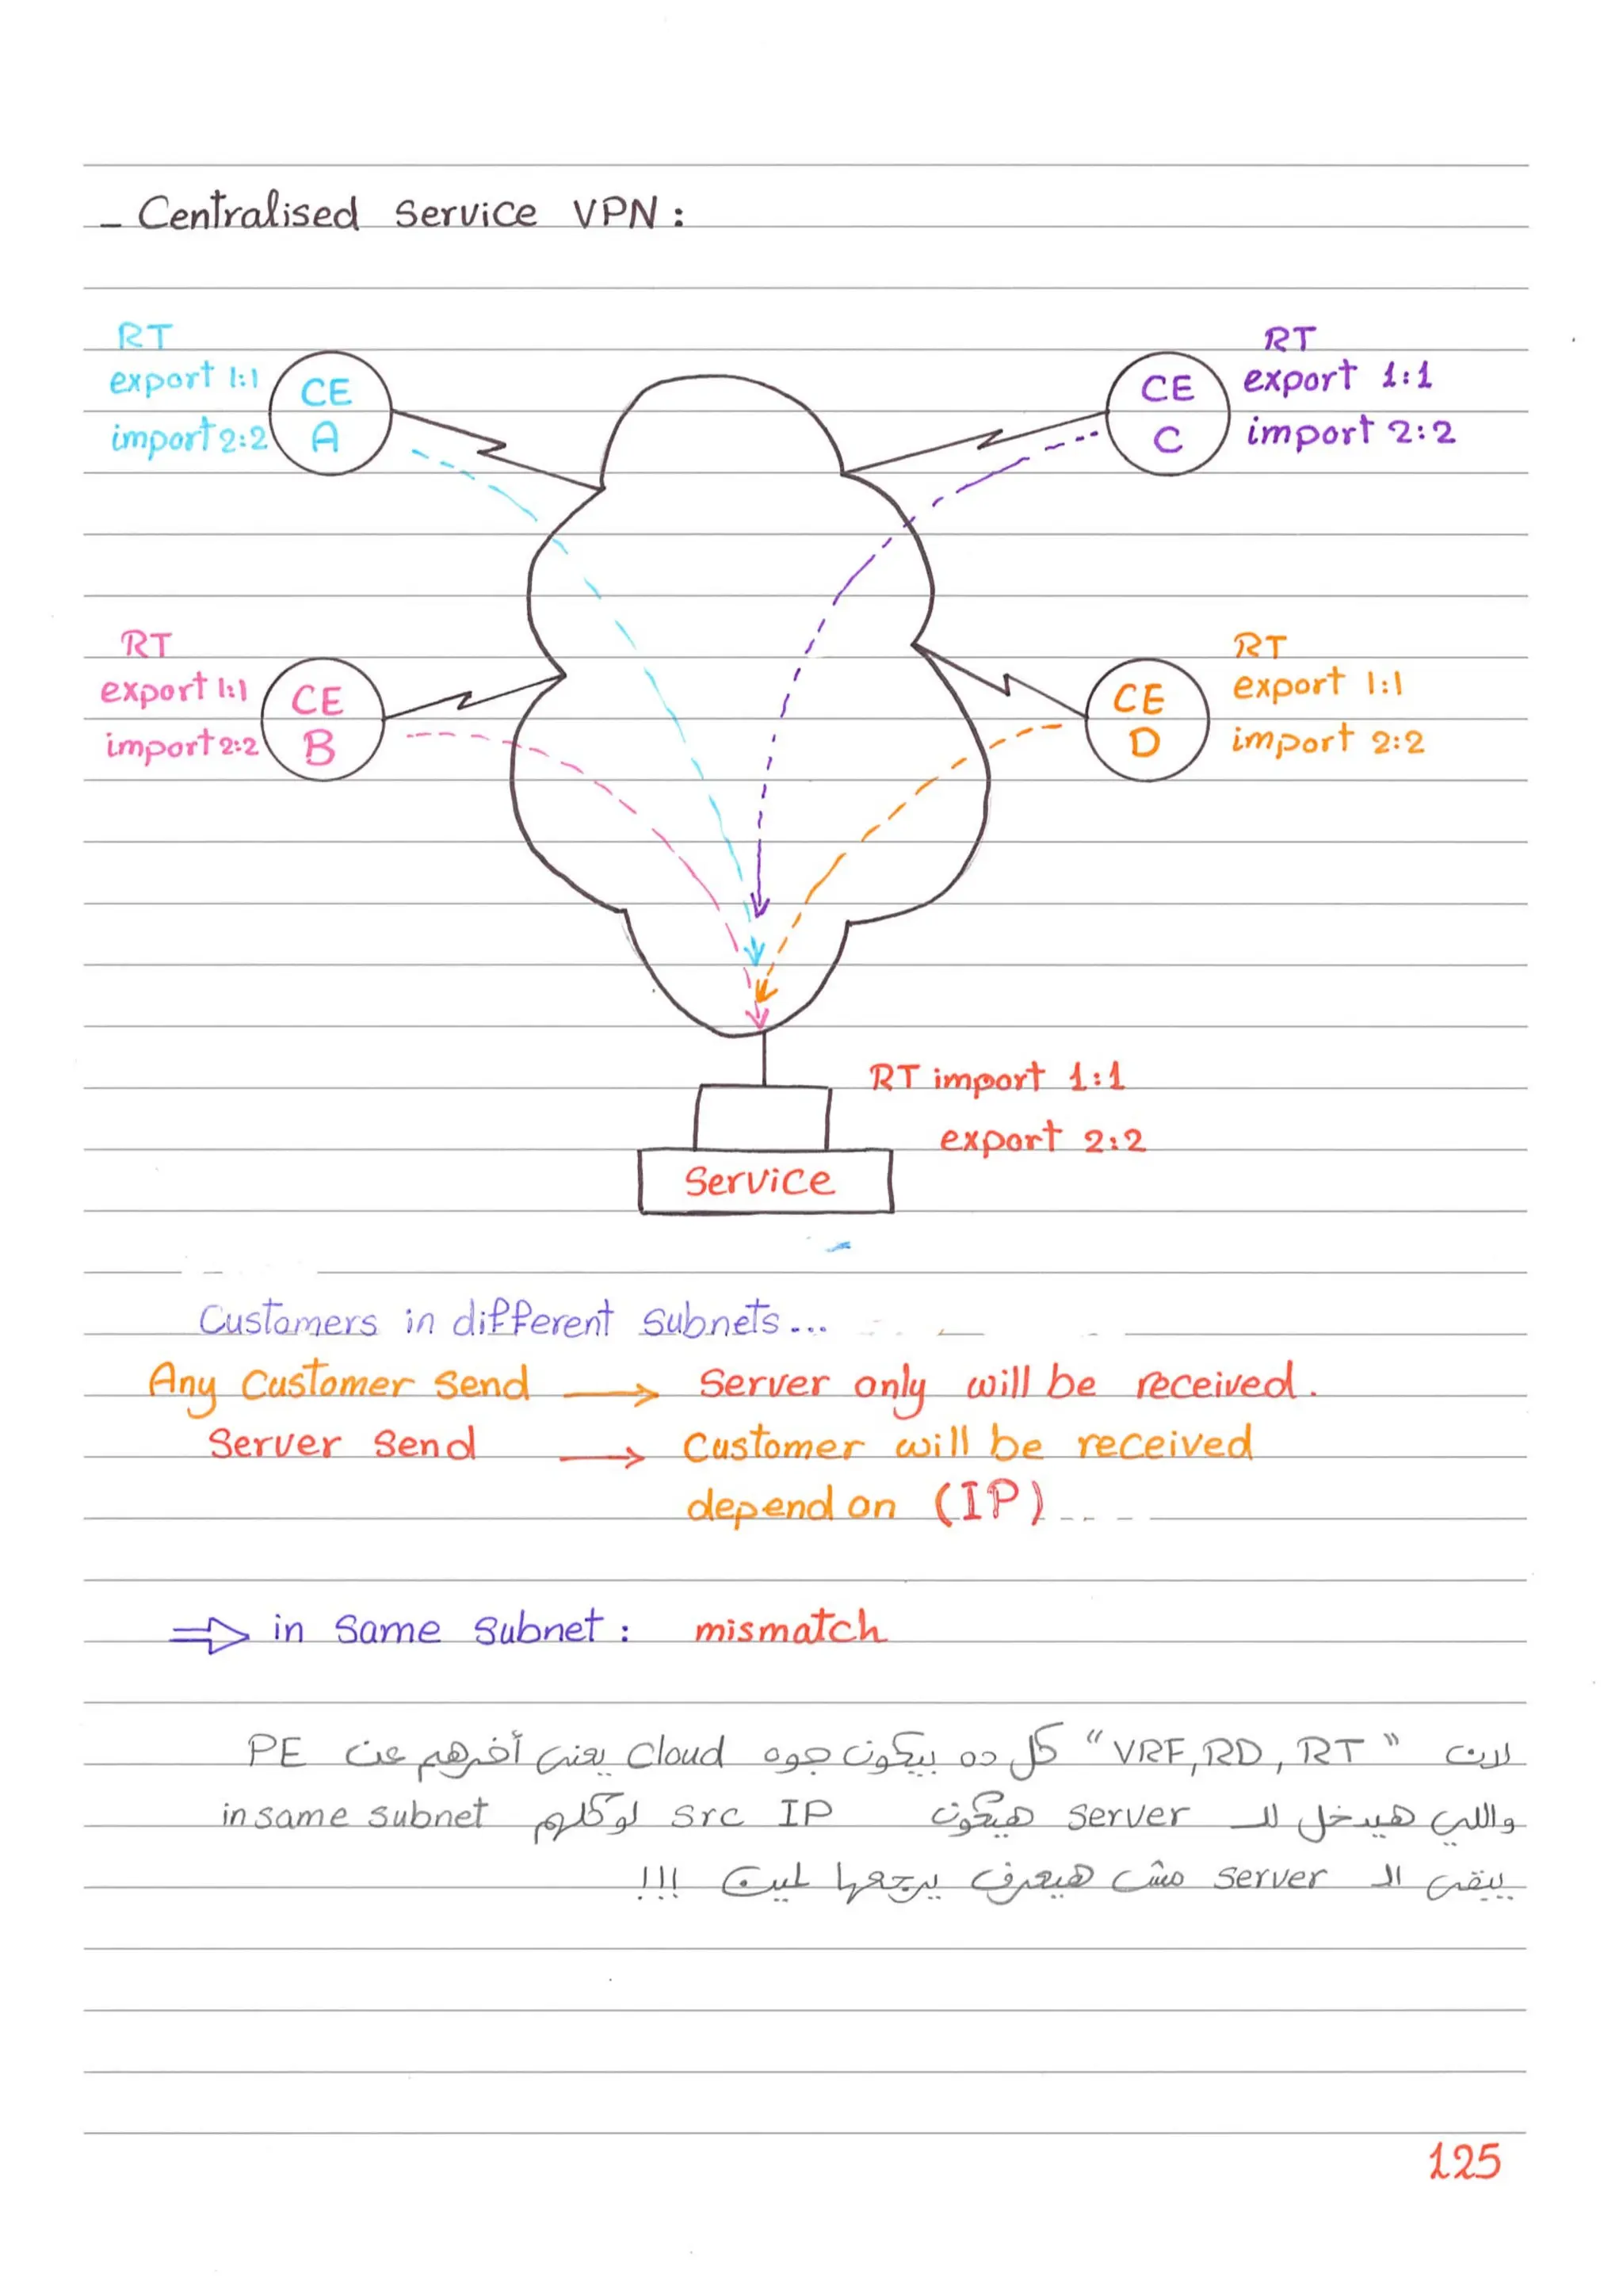 - Centralised Service VPN:
RT
export 1:1
import 2:2
CE
A
RT
export 1:1
import 2:2
CE
C
RT
export 1:1
import 2:2
CE
B
RT
export 1:1
import 2:2
CE
D
RT import 1:1
export 2:2
Service
Customers in different Subnets...
Any Customer Send → Server only will be received.
Server Send → Customer will be received
depend on (IP)....
⇒ in Same Subnet: mismatch
لان "VRF, RD, RT" كل ده بيكون جوه Cloud يعنى أخرهم عند PE
واللى هيدخل للـ server هيكون src IP لو كلهم in same subnet
يبقى الـ server مش هيعرف يرجعها لمين !!!
125